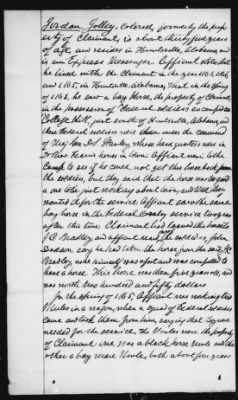 Jordan Polley, colored, formerly the prop-
erty of Claimant, is about thirty five years
of age, and resides in Huntsville, Alabama, and
is an Express Messenger. Affiant states that
he lived with the Claimant in the year 1863, 1864,
and 1865, in Huntsville, Alabama, that in the spring
of 1863, he saw a bay Horse, the property of Claimant
in the possession of Federal soldiers encamped on
College Hill, just south of Huntsville, Alabama, and
these Federal soldiers were then under the command
of Maj Gen D.S. Stanley whose head quarters were in
house in town. Affiant went to the
Camp to see if he could not get this horse back from
the soldiers, but they said that the horse was
a one, just working about town, and that they
wanted it for the service. Affiant saw the same
bay horse in the Federal Cavalry service two years
after this time. Claimant had
J C Bradley and affiant heard the soldiers,
say he had the horse from the said J C
Bradley, who himself was afoot and was compelled to
have a horse. This horse was then five years old, and
was worth two hundred and fifty dollars
In the spring of 1865, Affiant was working two
Mules in a wagon, when a squad of Federal soldiers
came and took them from him, saying that they were
needed for the service, the Mules were the property
of Claimant one was a black horse Mule and the
other a bay mare Mule, both about five years